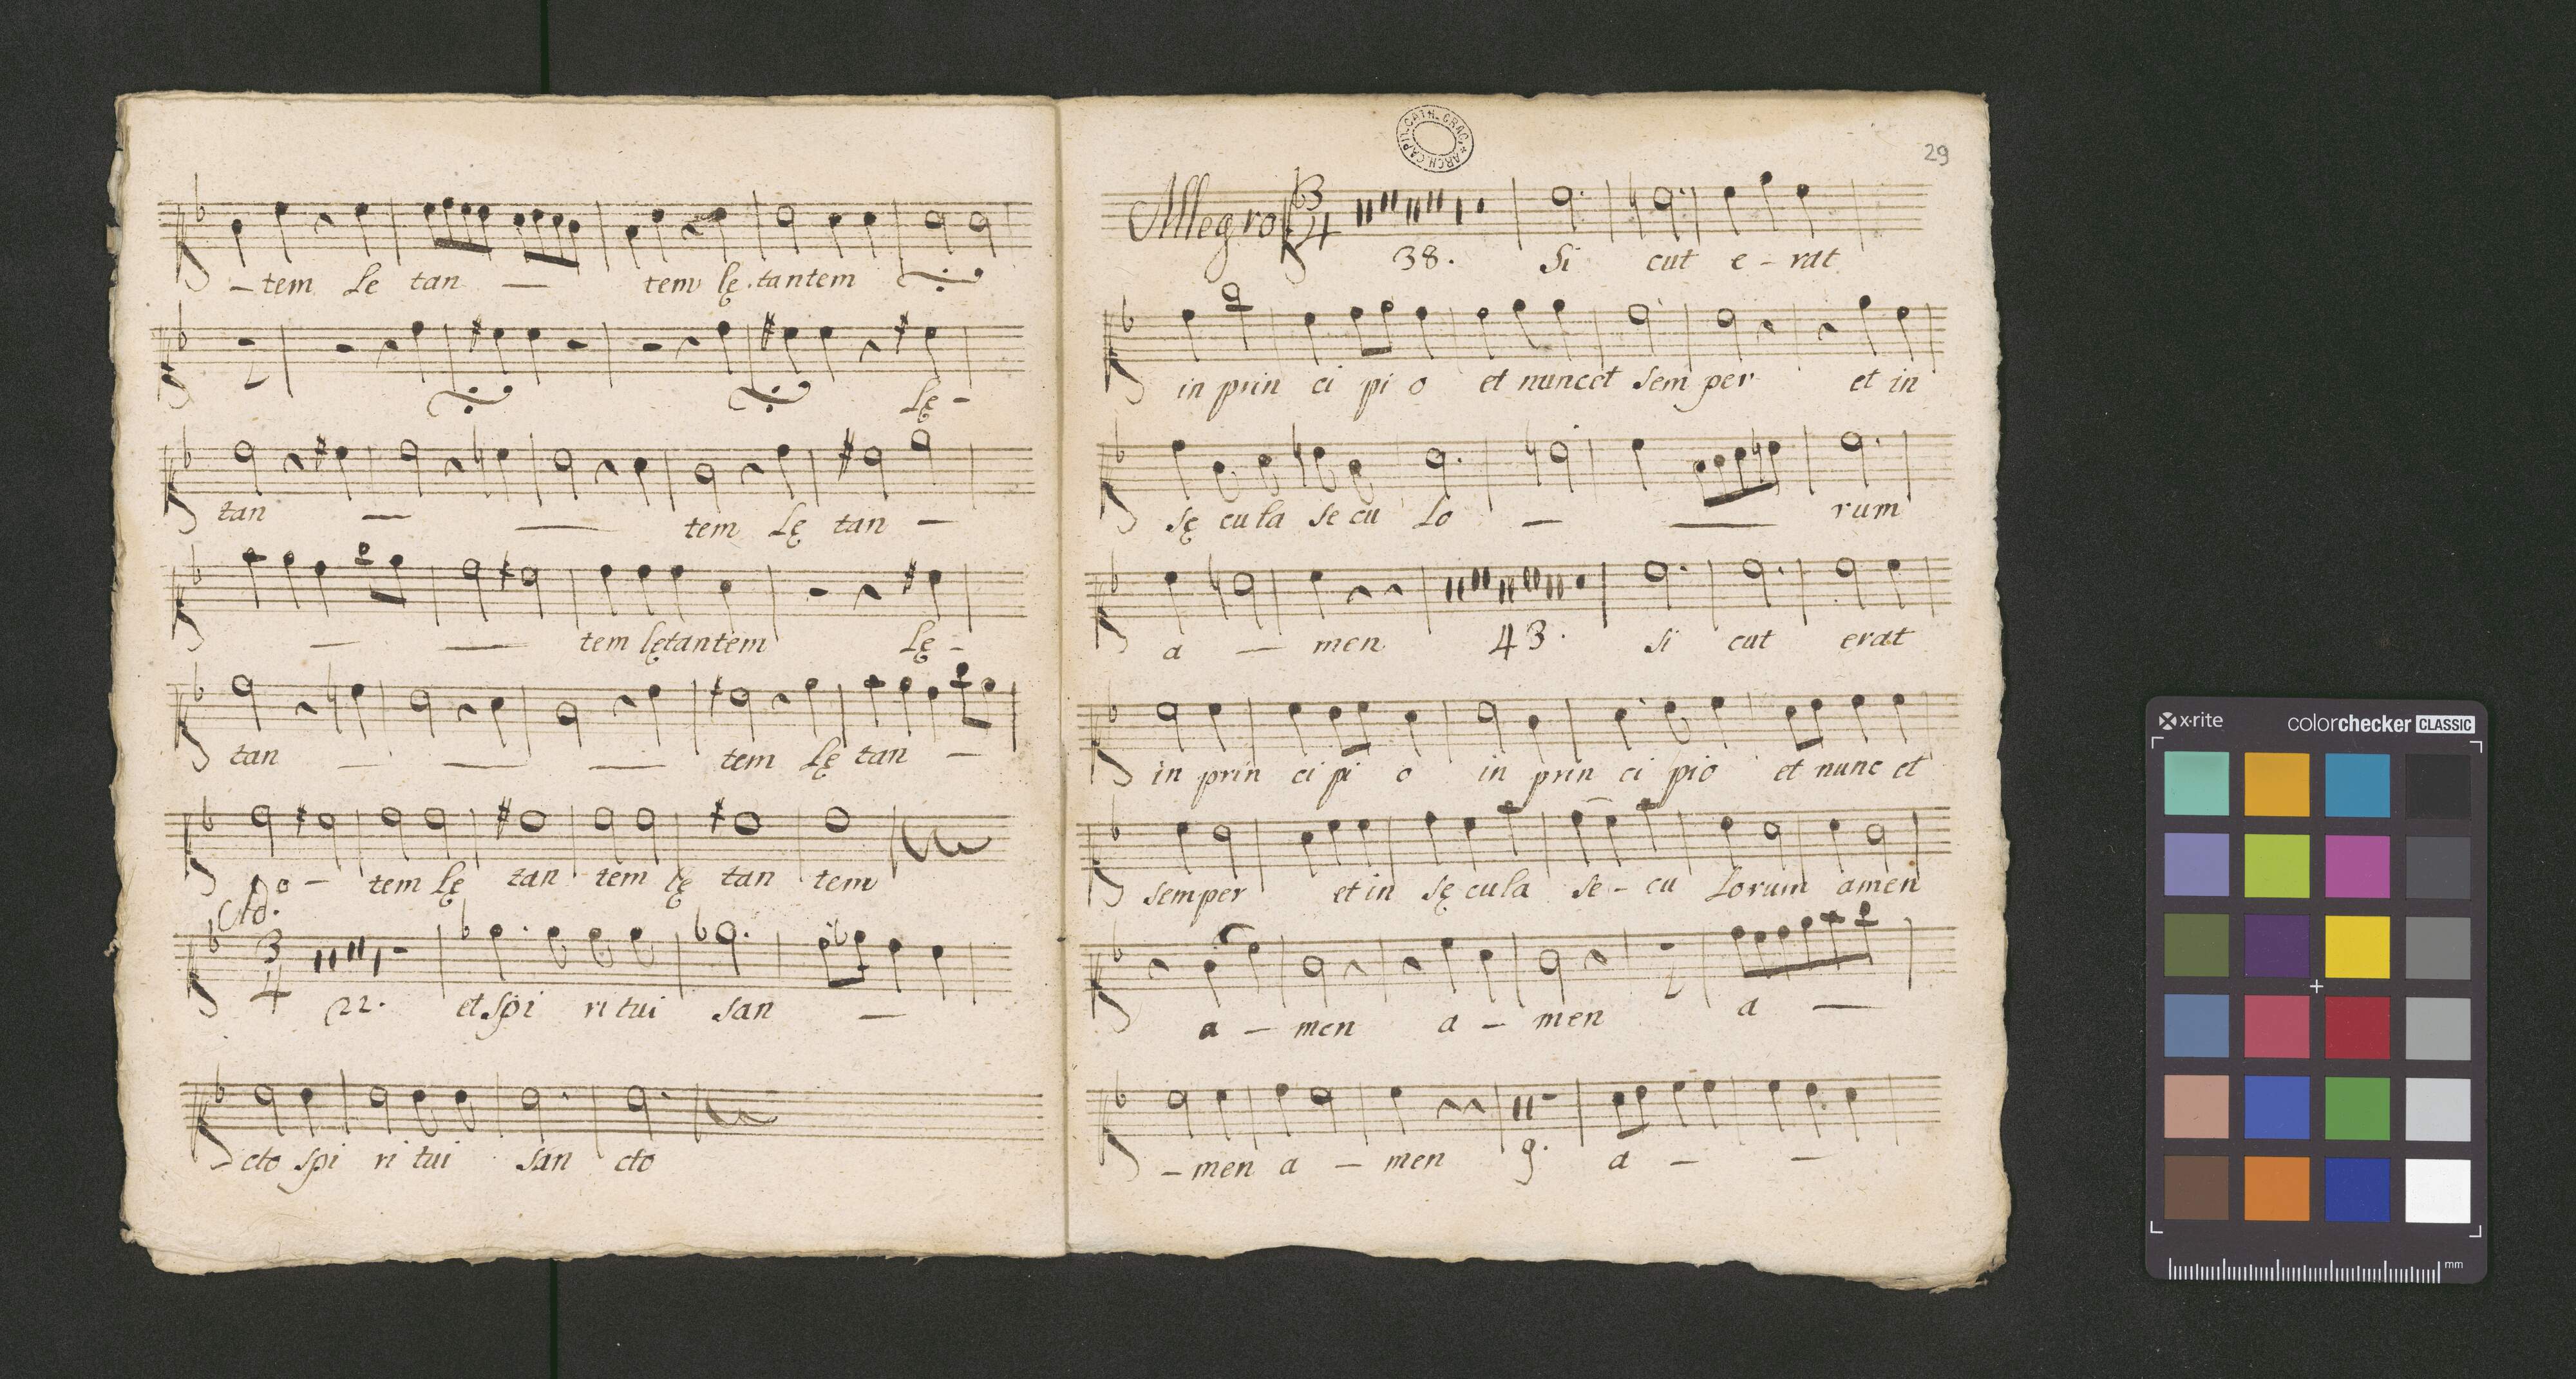 – tem Le tan — tem lę tantem
Lę -
tan — — tem Lę tan –
— — tem lętantem Lę -
tan — — — tem Lę tan –
– tem lę tan tem lę tan tem
3
4
22. et spi ri tui san —
cto spi ri tui san cto
ARCH. CAPIT. CATH. CRAC.
29
Allegro 3
4
38. Si cut e - rat
in prin ci pi o et nunc et sem per et in
sę cu la se cu Lo — — rum
a — men 43. si cut erat
in prin ci pi o in prin ci pio et nunc et
semper et in sę cu la se - cu Lorum amen
a – men a – men a —
– men a – men 9. a – –
x·rite colorchecker CLASSIC
mm